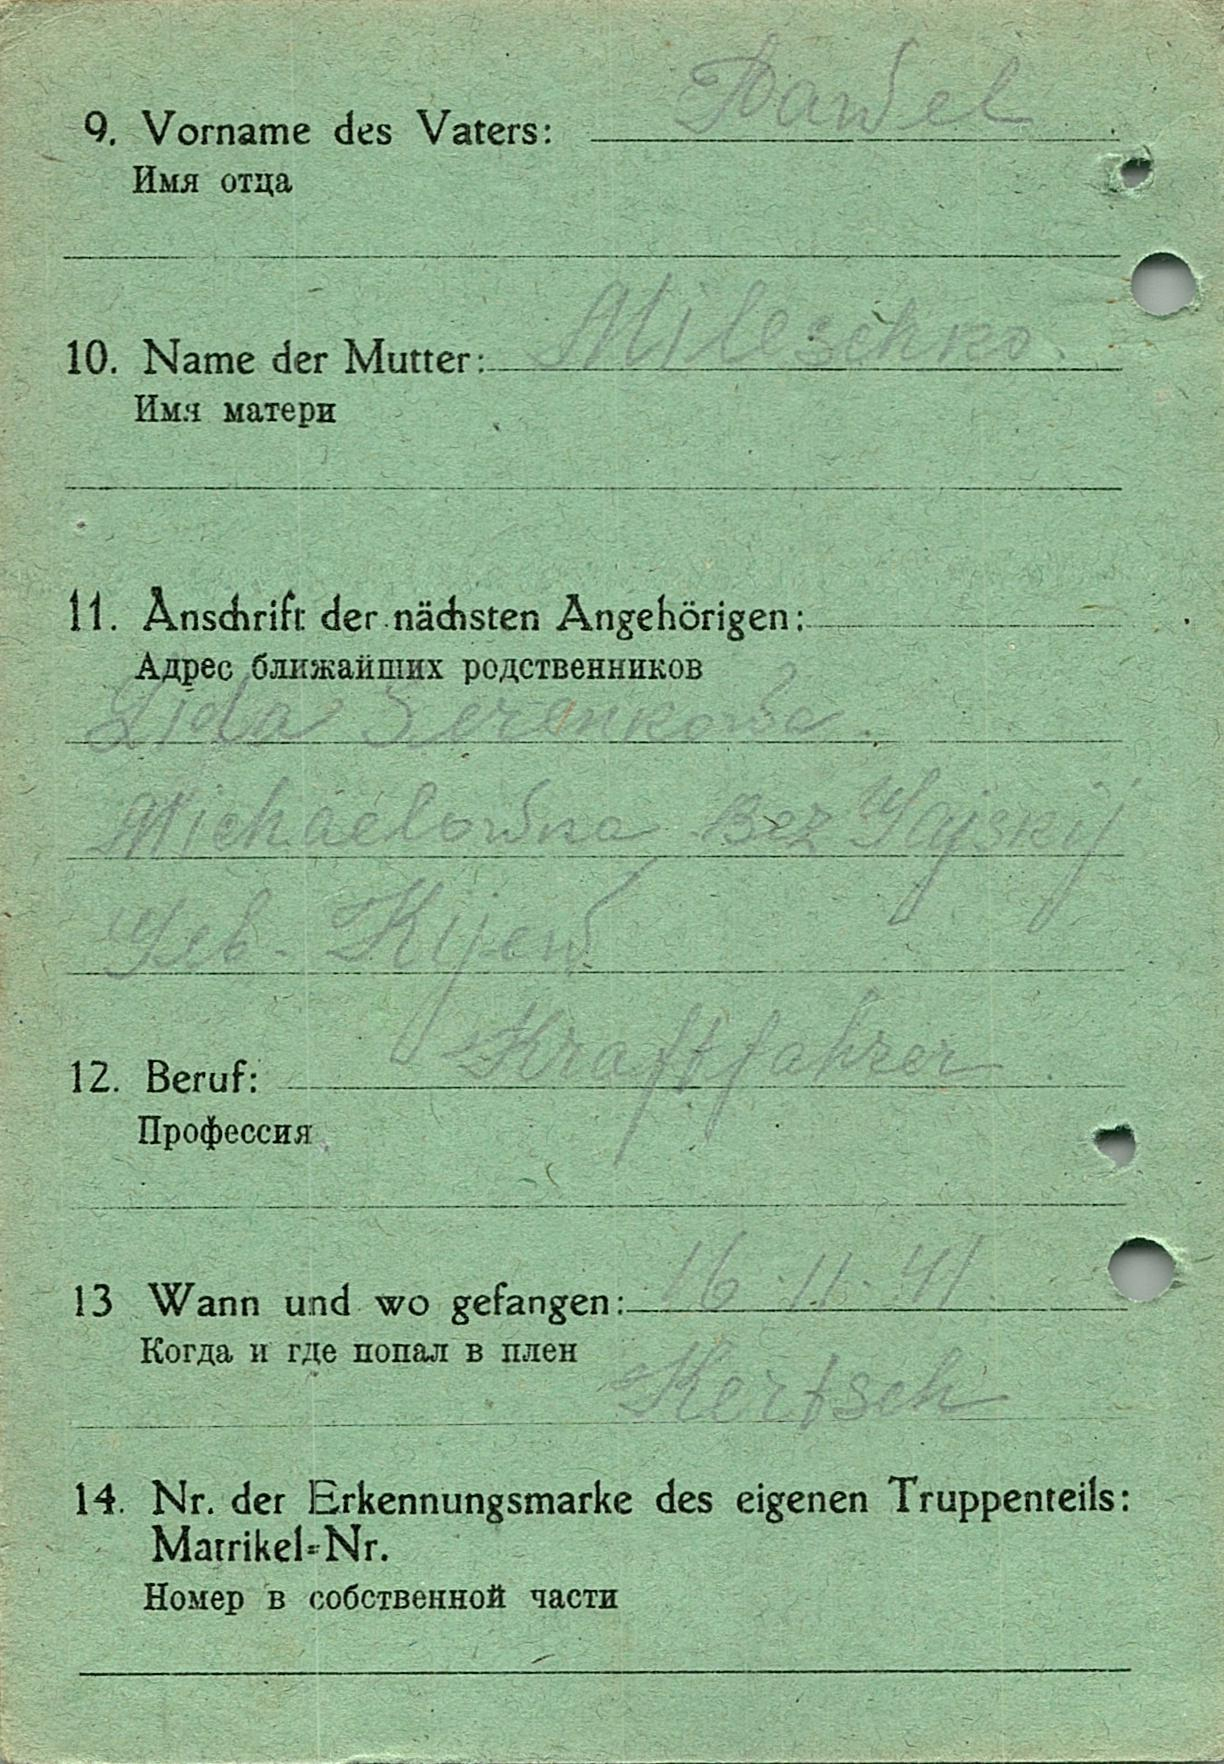 9. Vorname des Vaters: Pawel
Имя отца
10. Name der Mutter: Mileschko.
Имя матери
11. Anschrift der nächsten Angehörigen:
Адрес ближайших родственников
Lida Serenkowa.
Michaelowna Bez Gajskij
Geb. Kijew
12. Beruf: Kraftfahrer
Профессия
13 Wann und wo gefangen: 16.11.41
Когда и где попал в плен
Kertsch
14. Nr. der Erkennungsmarke des eigenen Truppenteils:
Matrikel-Nr.
Номер в собственной части